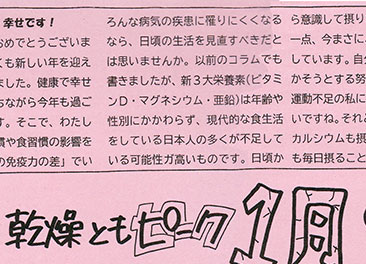 幸せです！
おめでとうございま
くも新しい年を迎え
ました。健康で幸せ
ちながら今年も過ご
す。そこで、わたし
慣や食習慣の影響を
の免疫力の差」でい
ろんな病気の疾患に罹りにくくなる
なら、日頃の生活を見直すべきだと
は思いませんか。以前のコラムでも
書きましたが、新3大栄養素(ビタミ
ンD・マグネシウム・亜鉛)は年齢や
性別にかかわらず、現代的な食生活
をしている日本人の多くが不足して
いる可能性が高いものです。日頃か
ら意識して摂り
一点、今まさに
しています。自分
かそうとする努
運動不足の私に
いですね。それと
カルシウムも摂
も毎日摂ること
乾燥ともピーク
1月